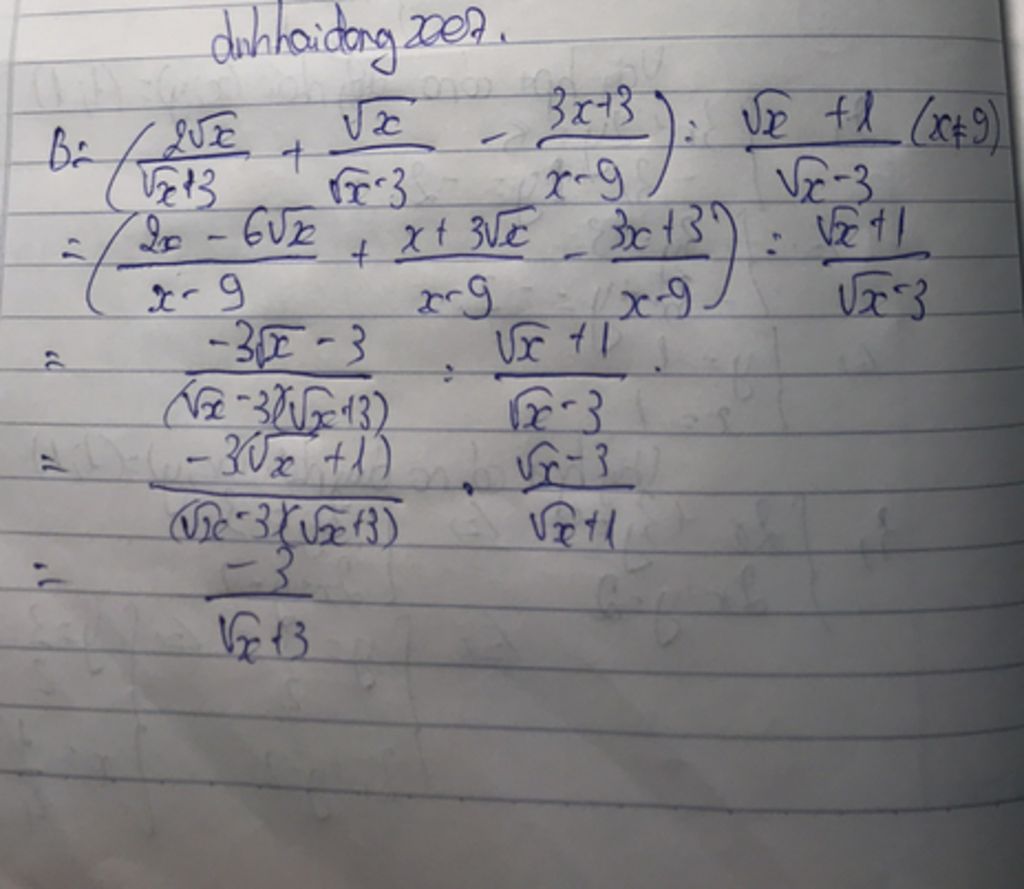 dinhhaidong2007.
B = (2√x/(√x+3) + √x/(√x-3) - (3x+3)/(x-9)) : (√x +1)/(√x-3) (x≠9)
= ((2x - 6√x)/(x-9) + (x+3√x)/(x-9) - (3x+3)/(x-9)) : (√x+1)/(√x-3)
= (-3√x - 3)/((√x-3)(√x+3)) : (√x+1)/(√x-3).
= -3(√x+1)/((√x-3)(√x+3)) . (√x-3)/(√x+1)
= -3/(√x+3)